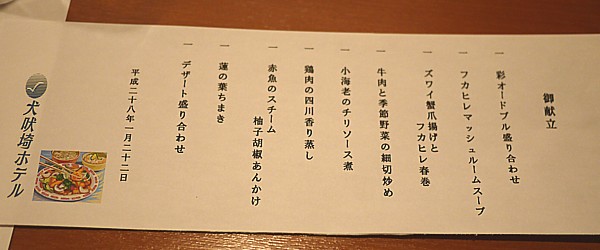 御献立
一 彩オードブル盛り合わせ
一 フカヒレマッシュルームスープ
一 ズワイ蟹爪揚げと
フカヒレ春巻
一 牛肉と季節野菜の細切炒め
一 小海老のチリソース煮
一 鶏肉の四川香り蒸し
一 赤魚のスチーム
柚子胡椒あんかけ
一 蓮の葉ちまき
一 デザート盛り合わせ
平成二十八年一月二十二日
犬吠埼ホテル